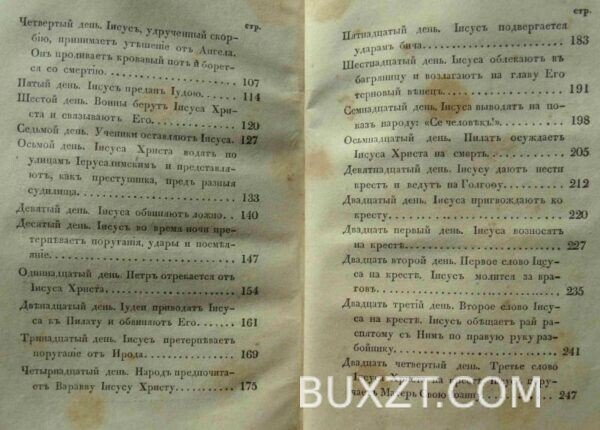 стр.
Четвертый день. Іисусъ, удрученный скор-
бію, принимаетъ утѣшеніе отъ Ангела.
Онъ проливаетъ кровавый потъ и борет-
ся со смертію. 107
Пятый день. Іисусъ преданъ Іудою. 114
Шестой день. Воины берутъ Іисуса Хри-
ста и связываютъ Его. 120
Седьмой день. Ученики оставляютъ Іисуса. 127
Осьмой день. Іисуса Христа водятъ по
улицамъ Іерусалимскимъ и представля-
ютъ, какъ преступника, предъ разныя
судилища. 133
Девятый день. Іисуса обвиняютъ ложно. 140
Десятый день. Іисусъ во время ночи пре-
терпѣваетъ поруганія, удары и посмѣя-
ніе. 147
Одиннадцатый день. Петръ отрекается отъ
Іисуса Христа. 154
Двѣнадцатый день. Іудеи приводятъ Іису-
са къ Пилату и обвиняютъ Его. 161
Тринадцатый день. Іисусъ претерпѣваетъ
поруганіе отъ Ирода. 169
Четырнадцатый день. Народъ предпочита-
етъ Варавву Іисусу Христу. 175
стр.
Пятнадцатый день. Іисусъ подвергается
ударамъ бича. 183
Шестнадцатый день. Іисуса облекаютъ въ
багряницу и возлагаютъ на главу Его
терновый вѣнецъ. 191
Семнадцатый день. Іисуса выводятъ на по-
казъ народу: «Се человѣкъ!». 198
Осьмнадцатый день. Пилатъ осуждаетъ
Іисуса Христа на смерть. 205
Девятнадцатый день. Іисусу даютъ нести
крестъ и ведутъ на Голгоѳу. 212
Двадцатый день. Іисуса пригвождаютъ ко
кресту. 220
Двадцать первый день. Іисуса возносятъ
на крестѣ. 227
Двадцать второй день. Первое слово Іису-
са на крестѣ. Іисусъ молится за вра-
говъ. 235
Двадцать третій день. Второе слово Іису-
са на крестѣ. Іисусъ обѣщаетъ рай рас-
пятому съ Нимъ по правую руку раз-
бойнику. 241
Двадцать четвертый день. Третье слово
Іисуса Христа на крестѣ. Іисусъ пору-
чаетъ Матерь Свою Іоанну. 247
BUXZT.COM